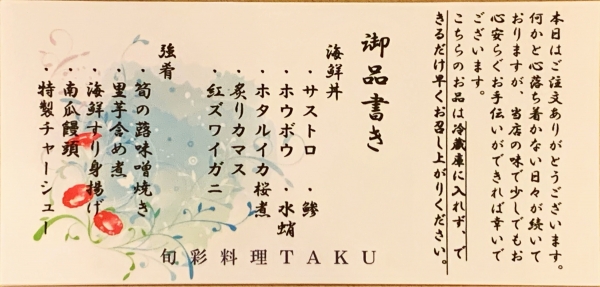 本日はご注文ありがとうございます。
何かと心落ち着かない日々が続いて
おりますが、当店の味で少しでもお
心安らぐお手伝いができれば幸いで
ございます。
こちらのお品は冷蔵庫に入れず、で
きるだけ早くお召し上がりください。
御品書き
海鮮丼
・サストロ ・鯵
・ホウボウ ・水蛸
・ホタルイカ桜煮
・炙りカマス
・紅ズワイガニ
強肴
・筍の蕗味噌焼き
・里芋含め煮
・海鮮すり身揚げ
・南瓜饅頭
・特製チャーシュー
旬彩料理TAKU